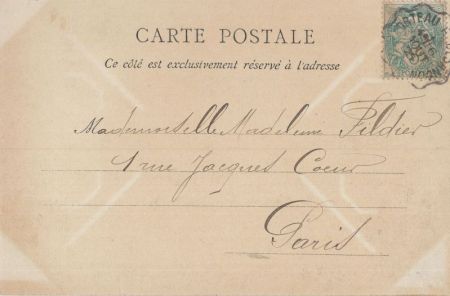 CARTE POSTALE
Ce côté est exclusivement réservé à l'adresse
Mademoiselle Madeleine Fildier
1 rue Jacques Coeur
Paris